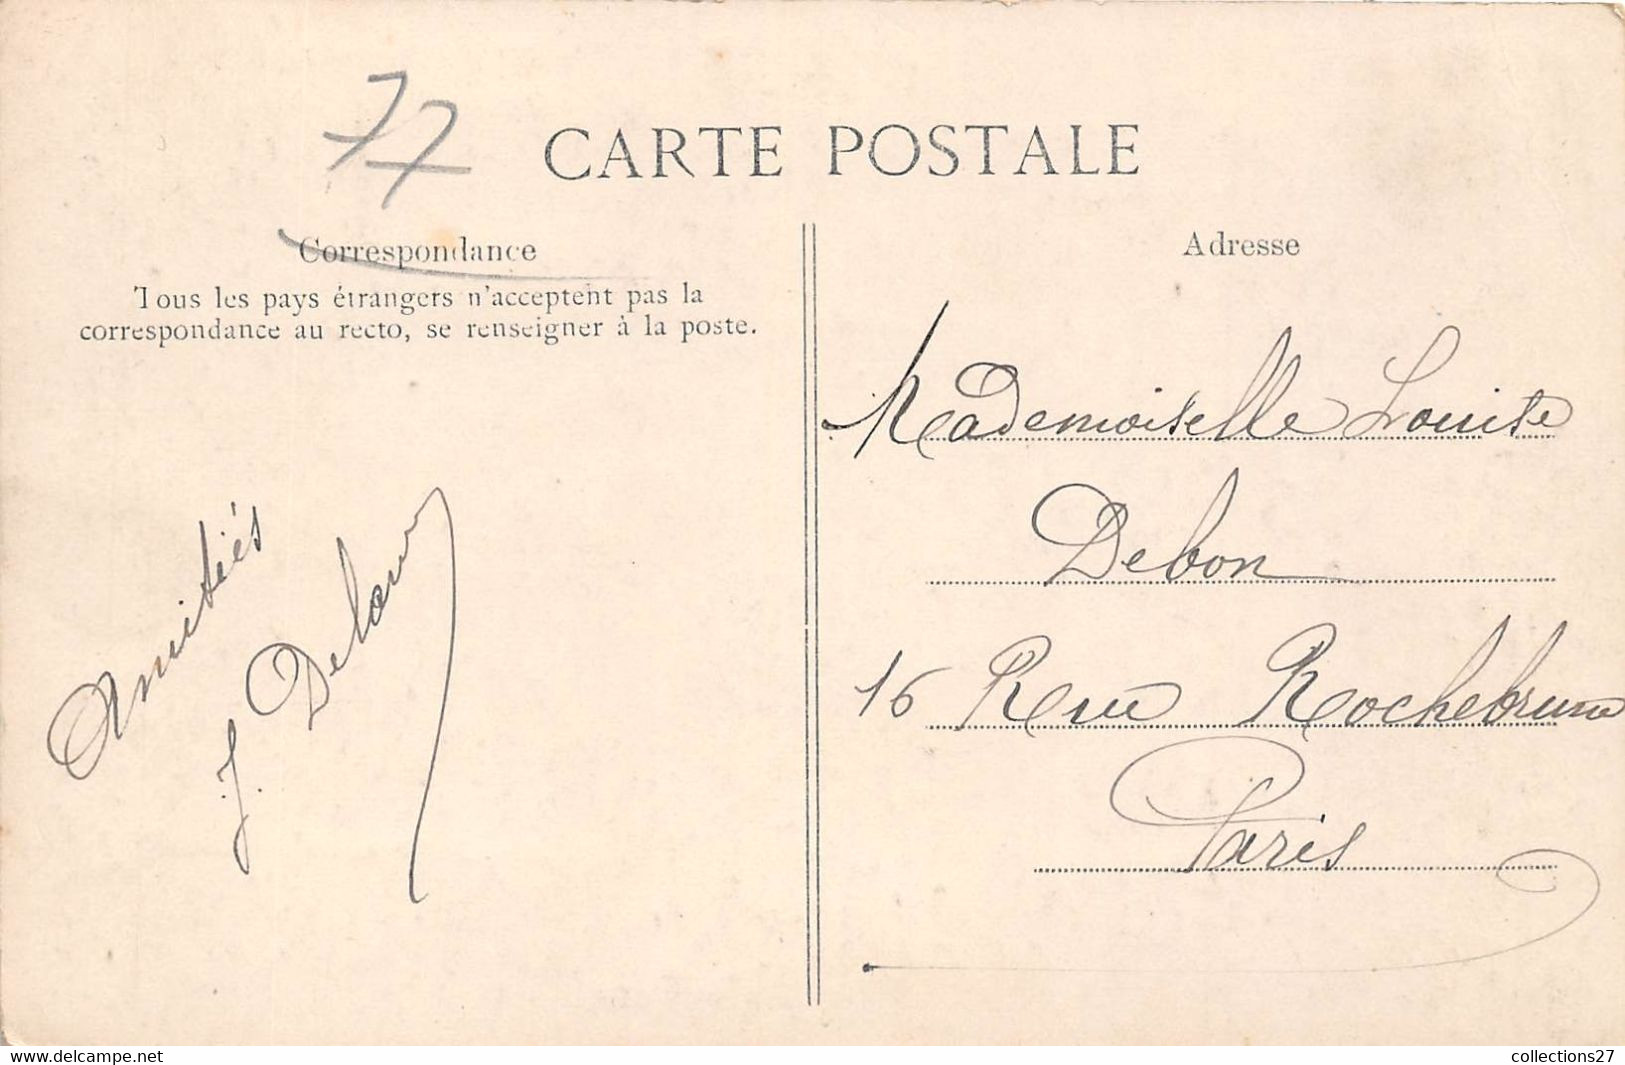 77
CARTE POSTALE
Correspondance
Tous les pays étrangers n'acceptent pas la
correspondance au recto, se renseigner à la poste.
Amitiés
J.
Adresse
Mademoiselle Louise
Debon
16 Rue Rochebrune
Paris
www.delcampe.net
collections27